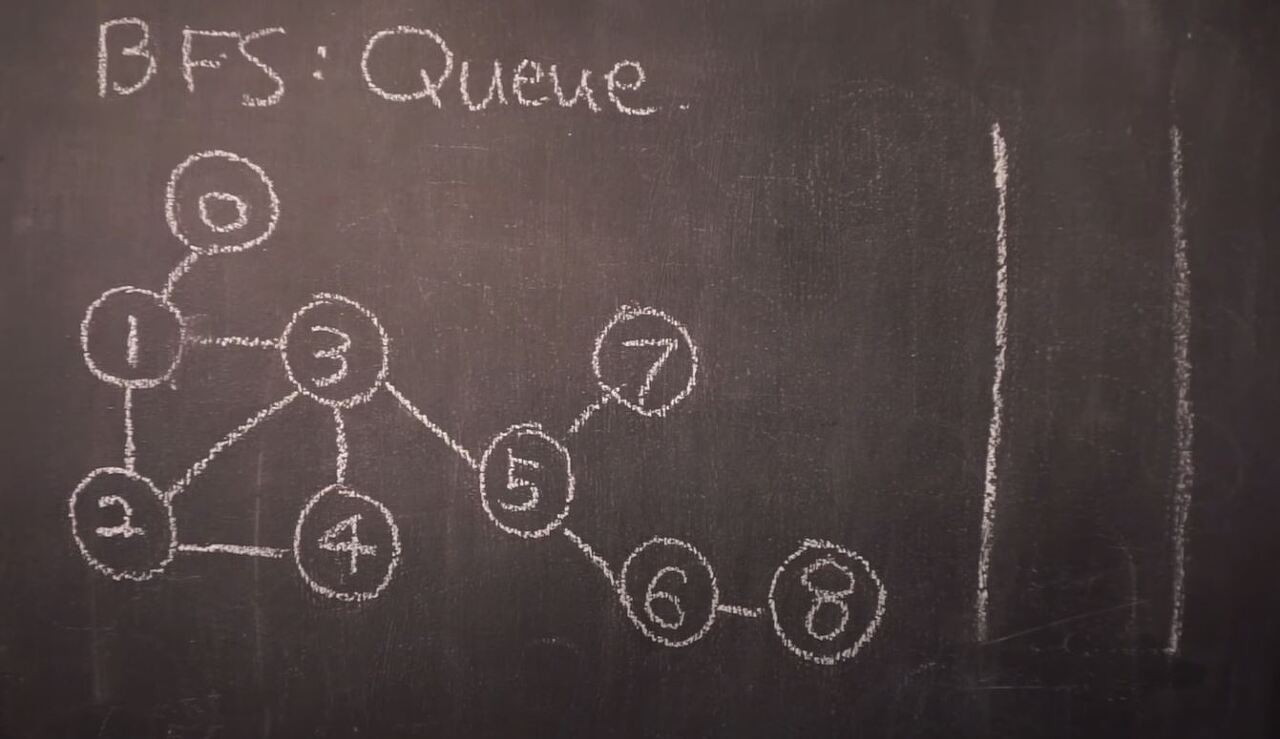 BFS: Queue.
0
1
3
7
5
2
4
6
8